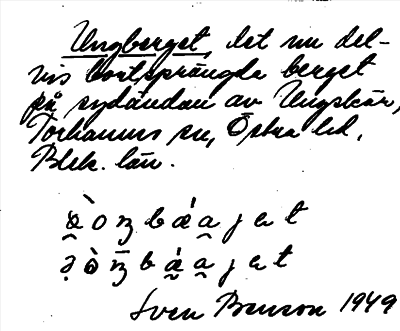 Ungberget, det nu del-
vis bortsprängda berget
på sydändan av Ungskär,
Torhamns sn, Östra hd,
Blek. län.
Sven Benson 1949